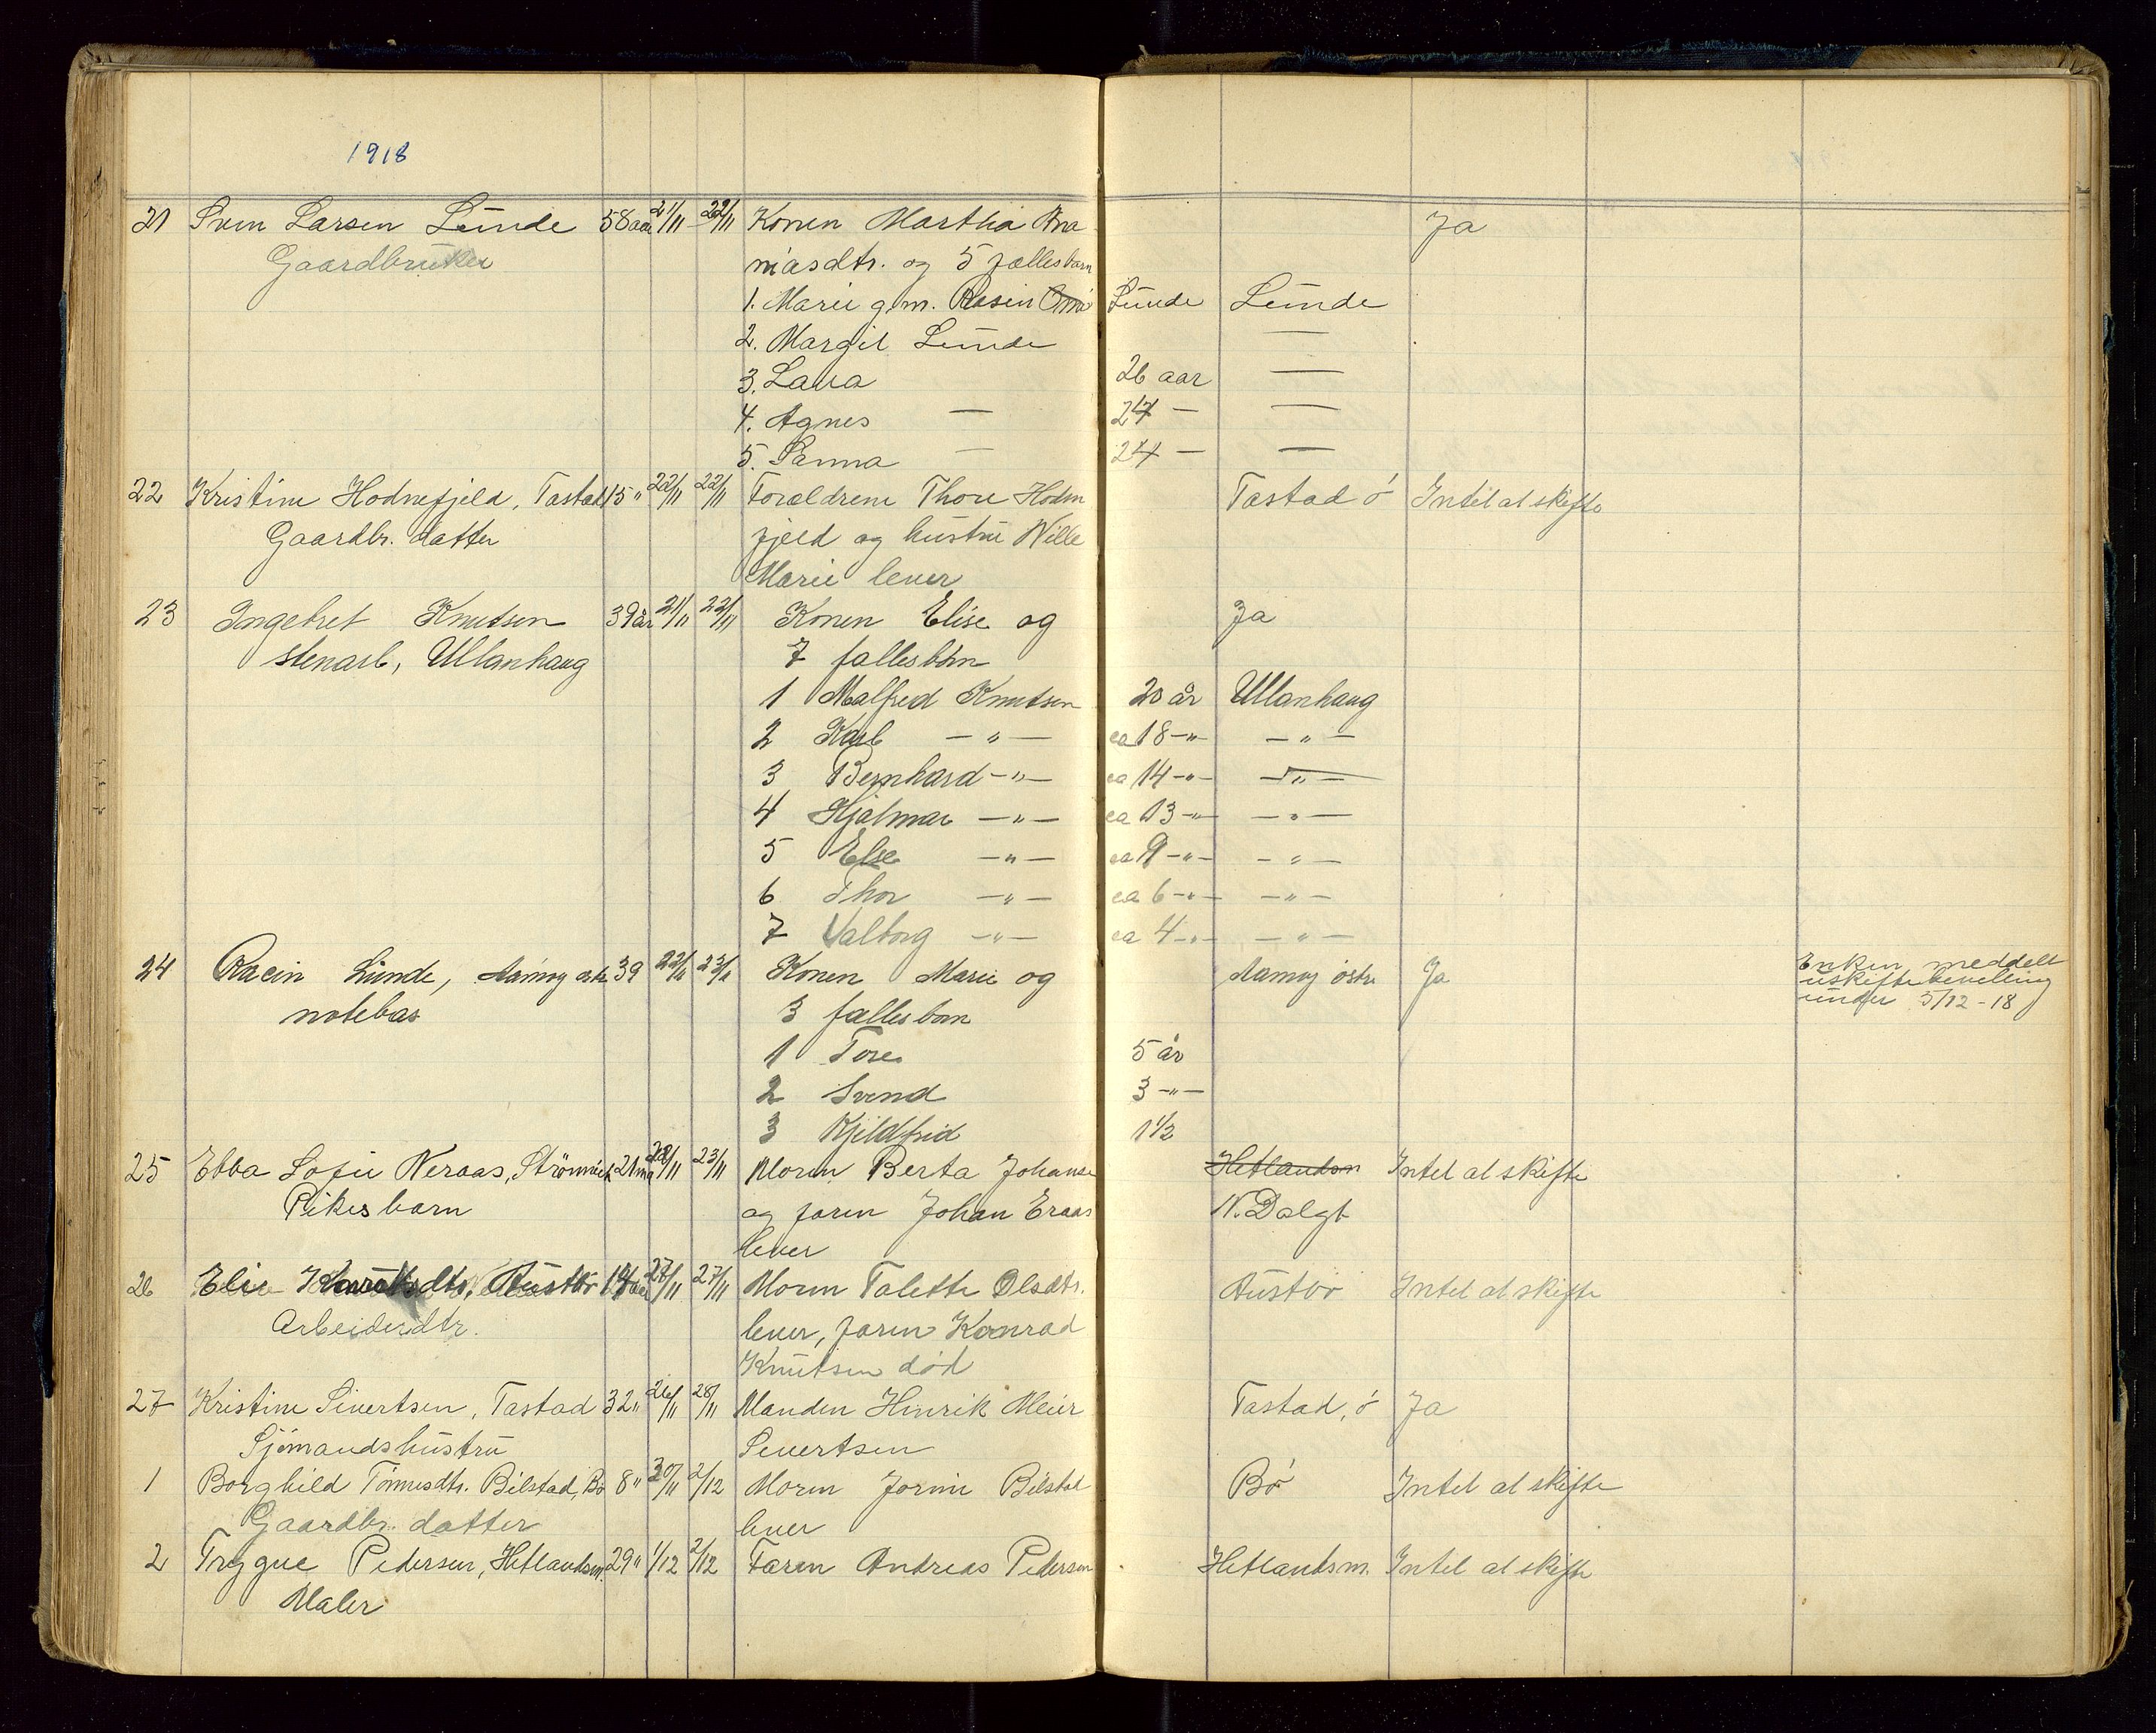 1918
21 Sven Larsen Lunde 58 aar 21/11 22/11 Konen Martha Ana Ja
Gaardbruker niasdtr. og 5 fællesbarn
1. Marie g.m. Rasin Lunde Lunde
2. Margit Lunde —
3. Laura 26 aar —
4. Agnes — 24 — —
5. Sanna — 24 — —
22 Kristine Hodnefjeld, Tastad 15 " 22/11 22/11 Forældrene Thore Hodne Tastad ö Intet at skifte
Gaardbr. datter fjeld og hustru Wille
Marie lever
23 Ingebret Knutsen 39 år 21/11 22/11 Konen Elise og Ja
stenarb, Ullanhaug 7 fallesbörn
1 Malfred Knutsen 20 år Ullanhaug
2 Karl — " — ca 18 - " - — " —
3 Bernhard — " — ca 14 - " - — " —
4 Hjalmar — " — ca 13 - " - — " —
5 Else — " — ca 9 - " - — " —
6 Thor — " — ca 6 - " - — " —
7 Valborg — " — ca 4 - " - — " —
24 Racin Lunde, Aamöy östr 39 22/11 23/11 Konen Marie og Aamöy östre Ja Enken meddelt
notebas 3 fallesbörn uskiftebevilling
under 5/12-18
1 Tore 5 år
2 Svend 3 - " -
3 Kjeldfrid 1 1/2
25 Ebba Sofie Neraas, Strömvick 21 ma 22/11 23/11 Moren Berta Johanse Hetlandsm Intet at skifte
Pikesbarn og faren Johan Eraas N. Dalgt
lever
26 Elie Knutsdtr, Austbö 14 aar 27/11 27/11 Moren Talette Olsdtr. Austbö Intet at skifte
Arbeiderdtr. lever, faren Konrad
Knutsen död
27 Kristine Sivertsen, Tastad 32 " 26/11 28/11 Manden Hinrik Meier Tastad, ö Ja
Sjömandshustru Severtsen
1 Borghild Tönnesdtr. Bilstad, Bö 8 " 30/11 2/12 Moren Jorine Bilstad Bö Intet at skifte
Gaardbr. datter lever
2 Trygve Pedersen, Hetlandsm. 29 " 1/12 2/12 Faren Andreas Pedersen Hetlandsm. Intet at skifte
Maler